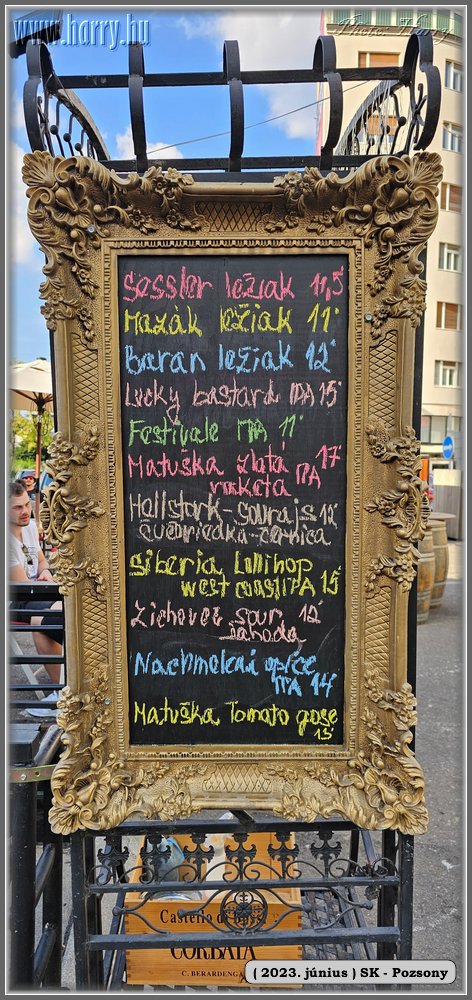 www.harry.hu
Photo: Harry
Sessler ležiak 11,5°
Mazák ležiak 11°
Baran ležiak 12°
Lucky bastard IPA 15°
Festivale IPA 11°
Matuška zlatá 17°
raketa IPA
Hellstork-sourajs 12
čučoriedka-černica
Siberia Lollihop
west coast IPA 15°
Zichovec sour 12°
Jahoda
Nachmelená opice
IPA 14°
Matuška Tomato gose
13°
Castello di
CORBAIA
C. BERARDENGA
( 2023. június ) SK - Pozsony